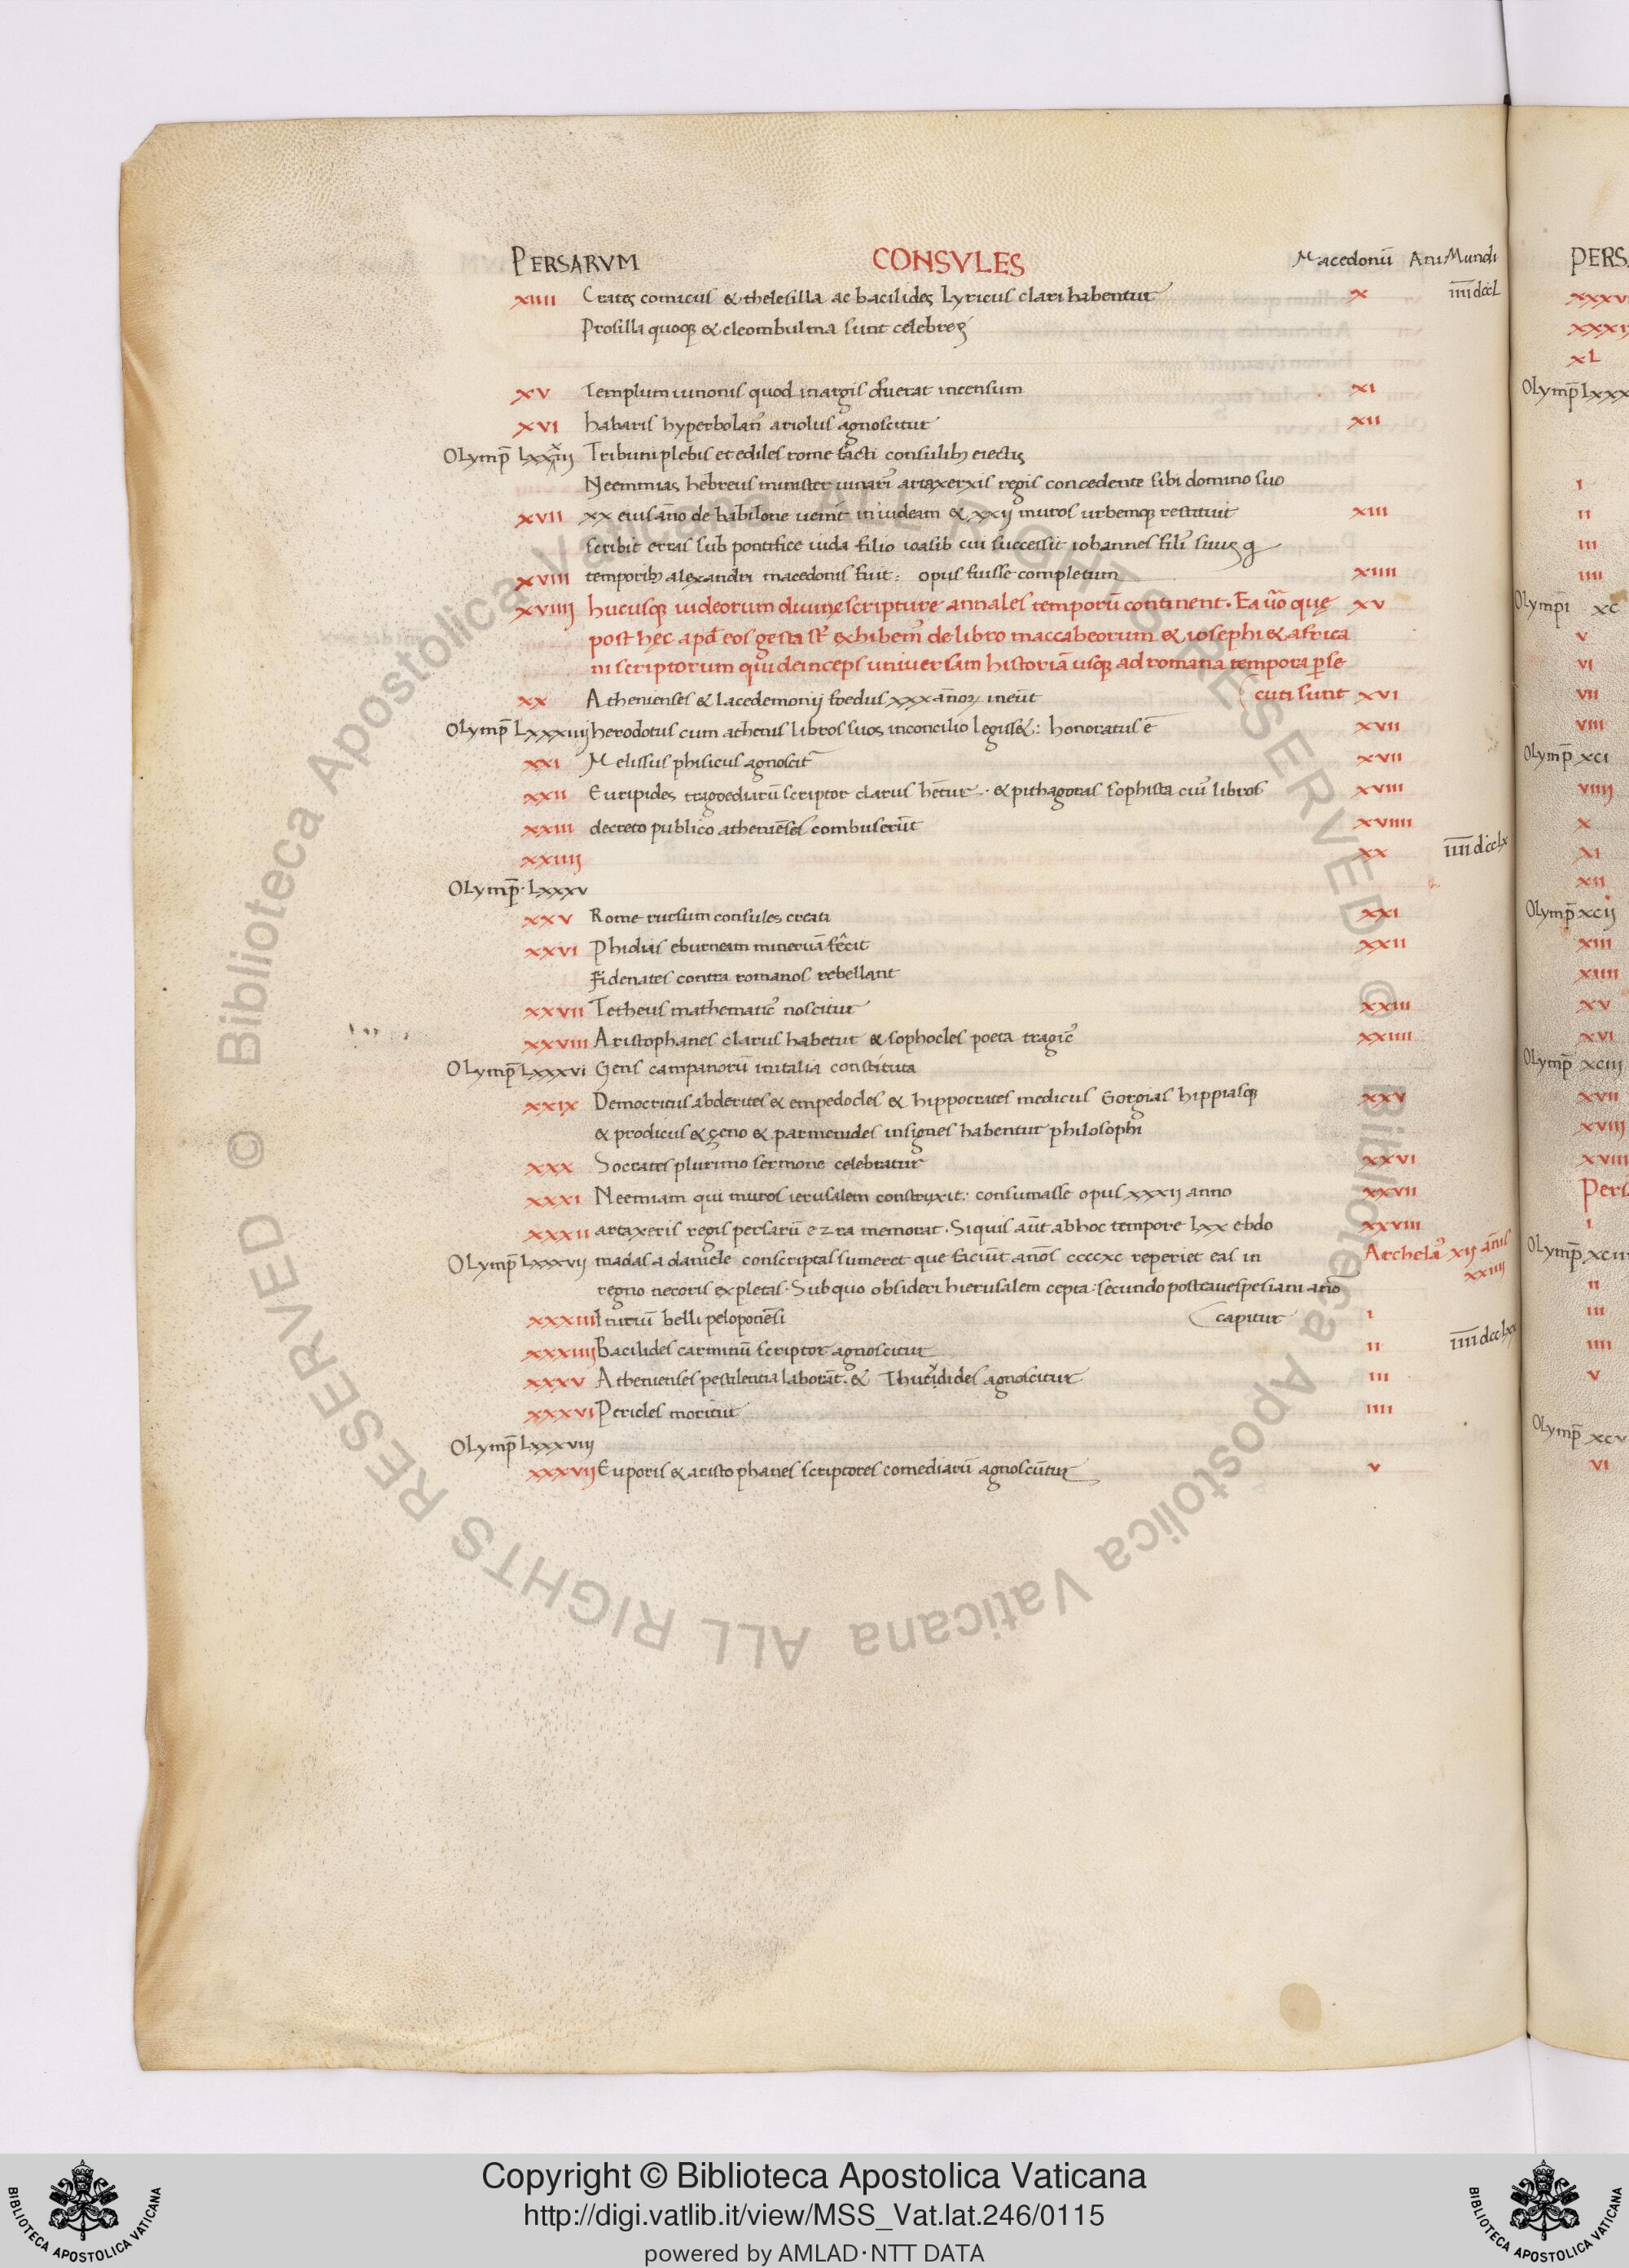 PERSARVM CONSVLES Macedonū Ani Mundi
XIIII Crates comicus & thelesilla ac bacilides Lyricus clari habentur X īīīīdccL
Prosilla quoq; & cleombulina sunt celebres
XV Templum iunonis quod in argis fuerat incensum XI
XVI habaris hyperbolan᾽ ariolus agnoscitur XII
OLymp̄ Lxxxiij Tribuni plebis et ediles rome facti consulib; eiectis
Neemmias hebreus minister uinari᾽ artaxerxis regis concedente sibi domino suo
XVII xx eius año de babilone uenit in iudeam & xxij muros urbemq; restituit XIII
scribit erras sub pontifice iuda filio ioasib cui successit iohannes fili᾽ suus q
XVIII temporib; alexandri macedonis fuit: opus fuisse completum XIIII
XVIIII hucusq; iudeorum diuine scripture annales temporū continent. Ea ūo quę XV
post hęc apd̄ eos gesta st̄ exhibem᾽ de libro maccabeorum & iosephi & africa
ni scriptorum qui deinceps universam historiā usq; ad romana tempora perse
XX Athenienses & Lacedemonij foedus xxx años ineūt cuti sunt XVI
OLymp̄ Lxxxiiij herodotus cum athenis libros suos in concilio legiss&: honoratus ē XVII
XXI Melissus phisicus agnoscit̄ XVII
XXII Euripides tragoediarū scriptor clarus het̄ur. & pithagoras sophista cui᾽ libros XVIII
XXIII decreto publico atheniēses combuserūt XVIIII
XXIIII XX īīīīdccLx
OLymp̄. Lxxxv
XXV Rome rursum consules creati XXI
XXVI Phidias eburneam mineruā fecit XXII
Fidenates contra romanos rebellant
XXVII Tetheus mathematic᾽ noscitur XXIII
XXVIII Aristophanes clarus habetur & sophocles poeta tragic᾽ XXIIII
OLymp̄ Lxxxvi Gens campanorū in italia constituta
XXIX Democritus abderites & empedocles & hippocrates medicus Gorgias hippiasq; XXV
& prodicus & zeno & parmenides insignes habentur philosophi
XXX Socrates plurimo sermone celebratur XXVI
XXXI Neemiam qui muros ierusalem construxit: consumasse opus xxxij anno XXVII
XXXII artaxeris regis persarū ezra memorat. Siquis aūt ab hoc tempore Lxx ebdo XXVIII
OLymp̄ Lxxxvij madas a daniele conscriptas sumeret que faciūt años ccccxc reperiet eas in Archela᾽ xij añis
regno neroris expletas. Sub quo obsideri hierusalem cepta: secundo postea uespesiani año xxiiii
XXXIII Initiū belli peloponēsi capitur I
XXXIIII Bacilides carminū scriptor agnoscitur II īīīīdccLxx
XXXV Athenienses pestilentia laborāt. & Thucydides agnoscitur III
XXXVI Pericles moritur IIII
OLymp̄ Lxxxviij
XXXVII Euporis & aristophanes scriptores comediarū agnoscūtur V
PERS
XL
OLymp̄ Lxxx
I
II
III
IIII
Olympi xc
V
VI
VII
VIII
Olymp̄ xci
VIIII
X
XI
XII
Olymp̄ xcij
XIII
XIIII
XV
XVI
Olymp̄ xciij
XVII
XVIII
XVIIII
Pers
I
Olymp̄ xcii
II
III
IIII
V
Olymp̄ xcv
VI
© Biblioteca Apostolica Vaticana ALL RIGHTS RESERVED © Biblioteca Apostolica Vaticana ALL RIGHTS RESERVED
Copyright © Biblioteca Apostolica Vaticana
http://digi.vatlib.it/view/MSS_Vat.lat.246/0115
powered by AMLAD·NTT DATA
BIBLIOTECA APOSTOLICA VATICANA
BIBLIOTECA APOSTOLICA VATICANA